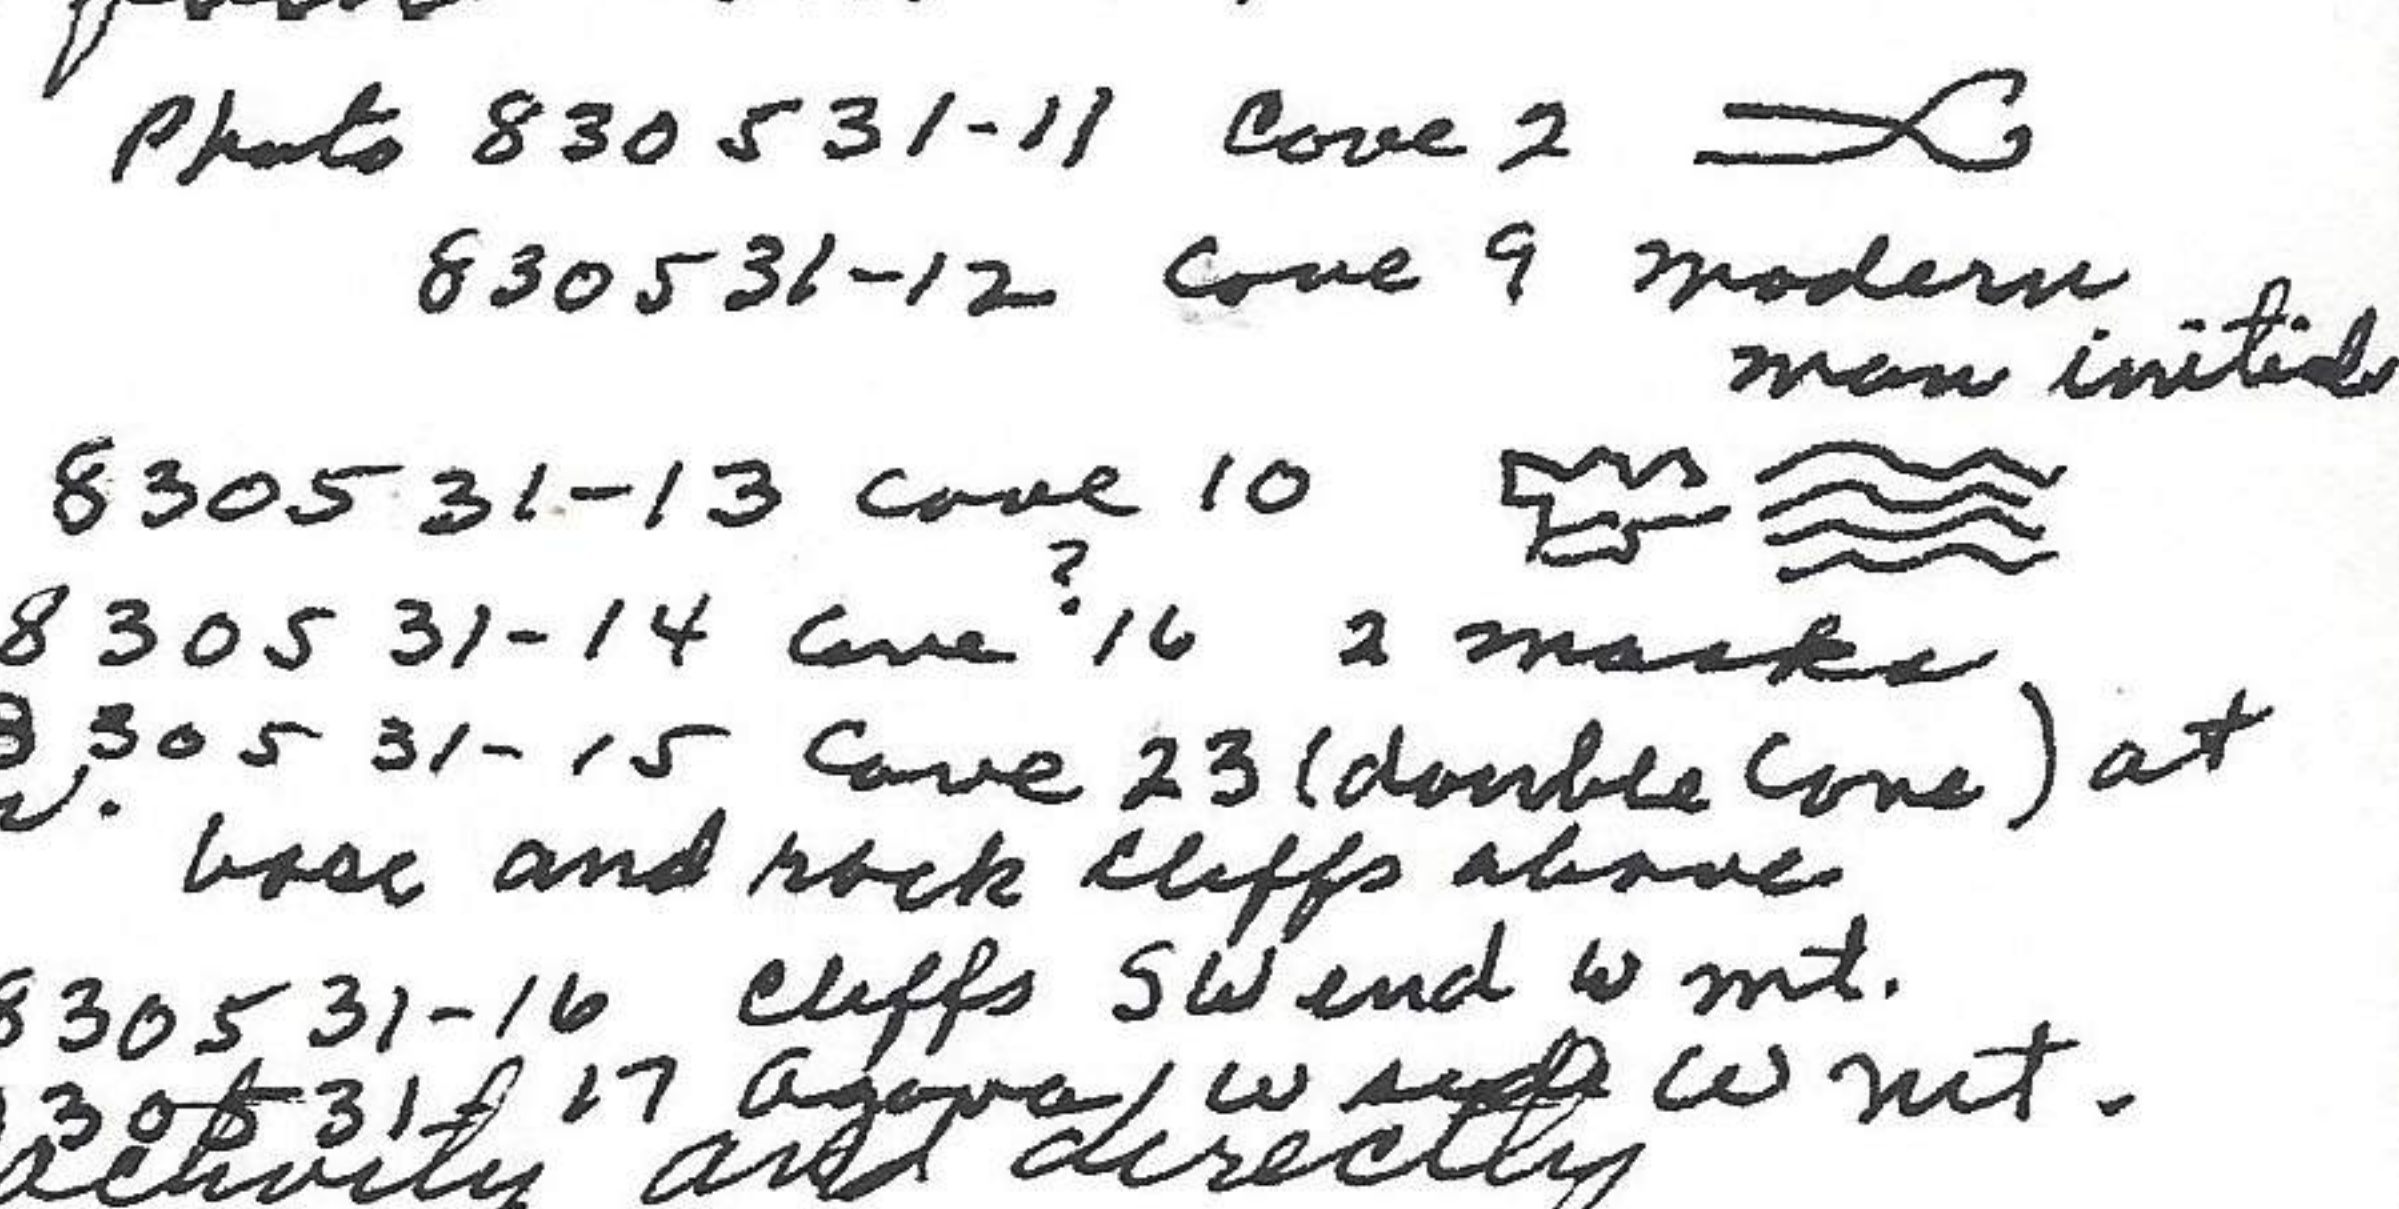 Photo 830531-11 Cave 2
830531-12 Cave 9 modern
man initials
830531-13 cave 10
?
830531-14 Cave 16 2 masks
830531-15 Cave 23 (double Cave) at
base and rock cliffs above
830531-16 Cliffs SW end W mt.
830531-17 Agava, W side W mt.
activity and directly